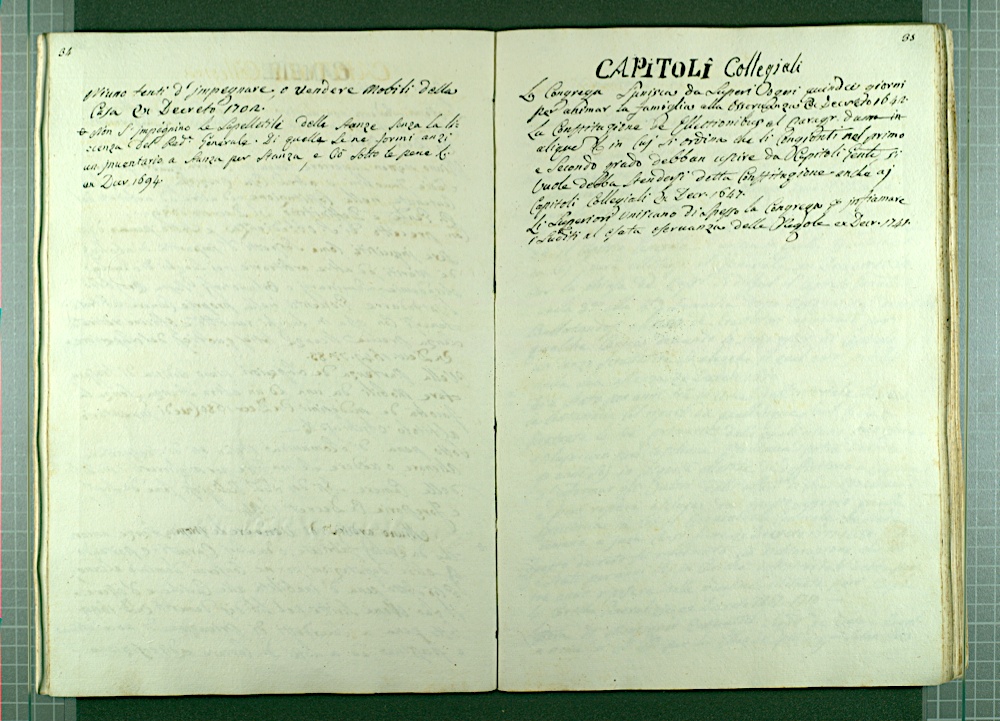 34
Niuno tenti d'impegnare, o vendere Mobili della
Casa Ex Decreto 1702.
Non s'impegnino le Supelletili delle stanze senza la li
cenza del Generale. Di quelle se ne formi anzi
un Inventario a stanza per stanza, e Cō sotto le pene
ex Decr. 1694.
35
CAPiTOLi Collegiali
La Congrega da Superi Ogni quindici giorni
per animar la famiglia alla Osservanza Decreto 1642.
La Constitutione de Electionibus al paragr.
in si ordina che li Congionti nel primo
e Secondo grado debban uscire da Capitoli
vuole debba stendersi detta Constitutione anche aj
Capitoli Collegiali Decr. 1647.
Li Superiori Uniscano di spesso la Congrega
i Suditi al esata osservanza delle Regole ex Decr. 1741.